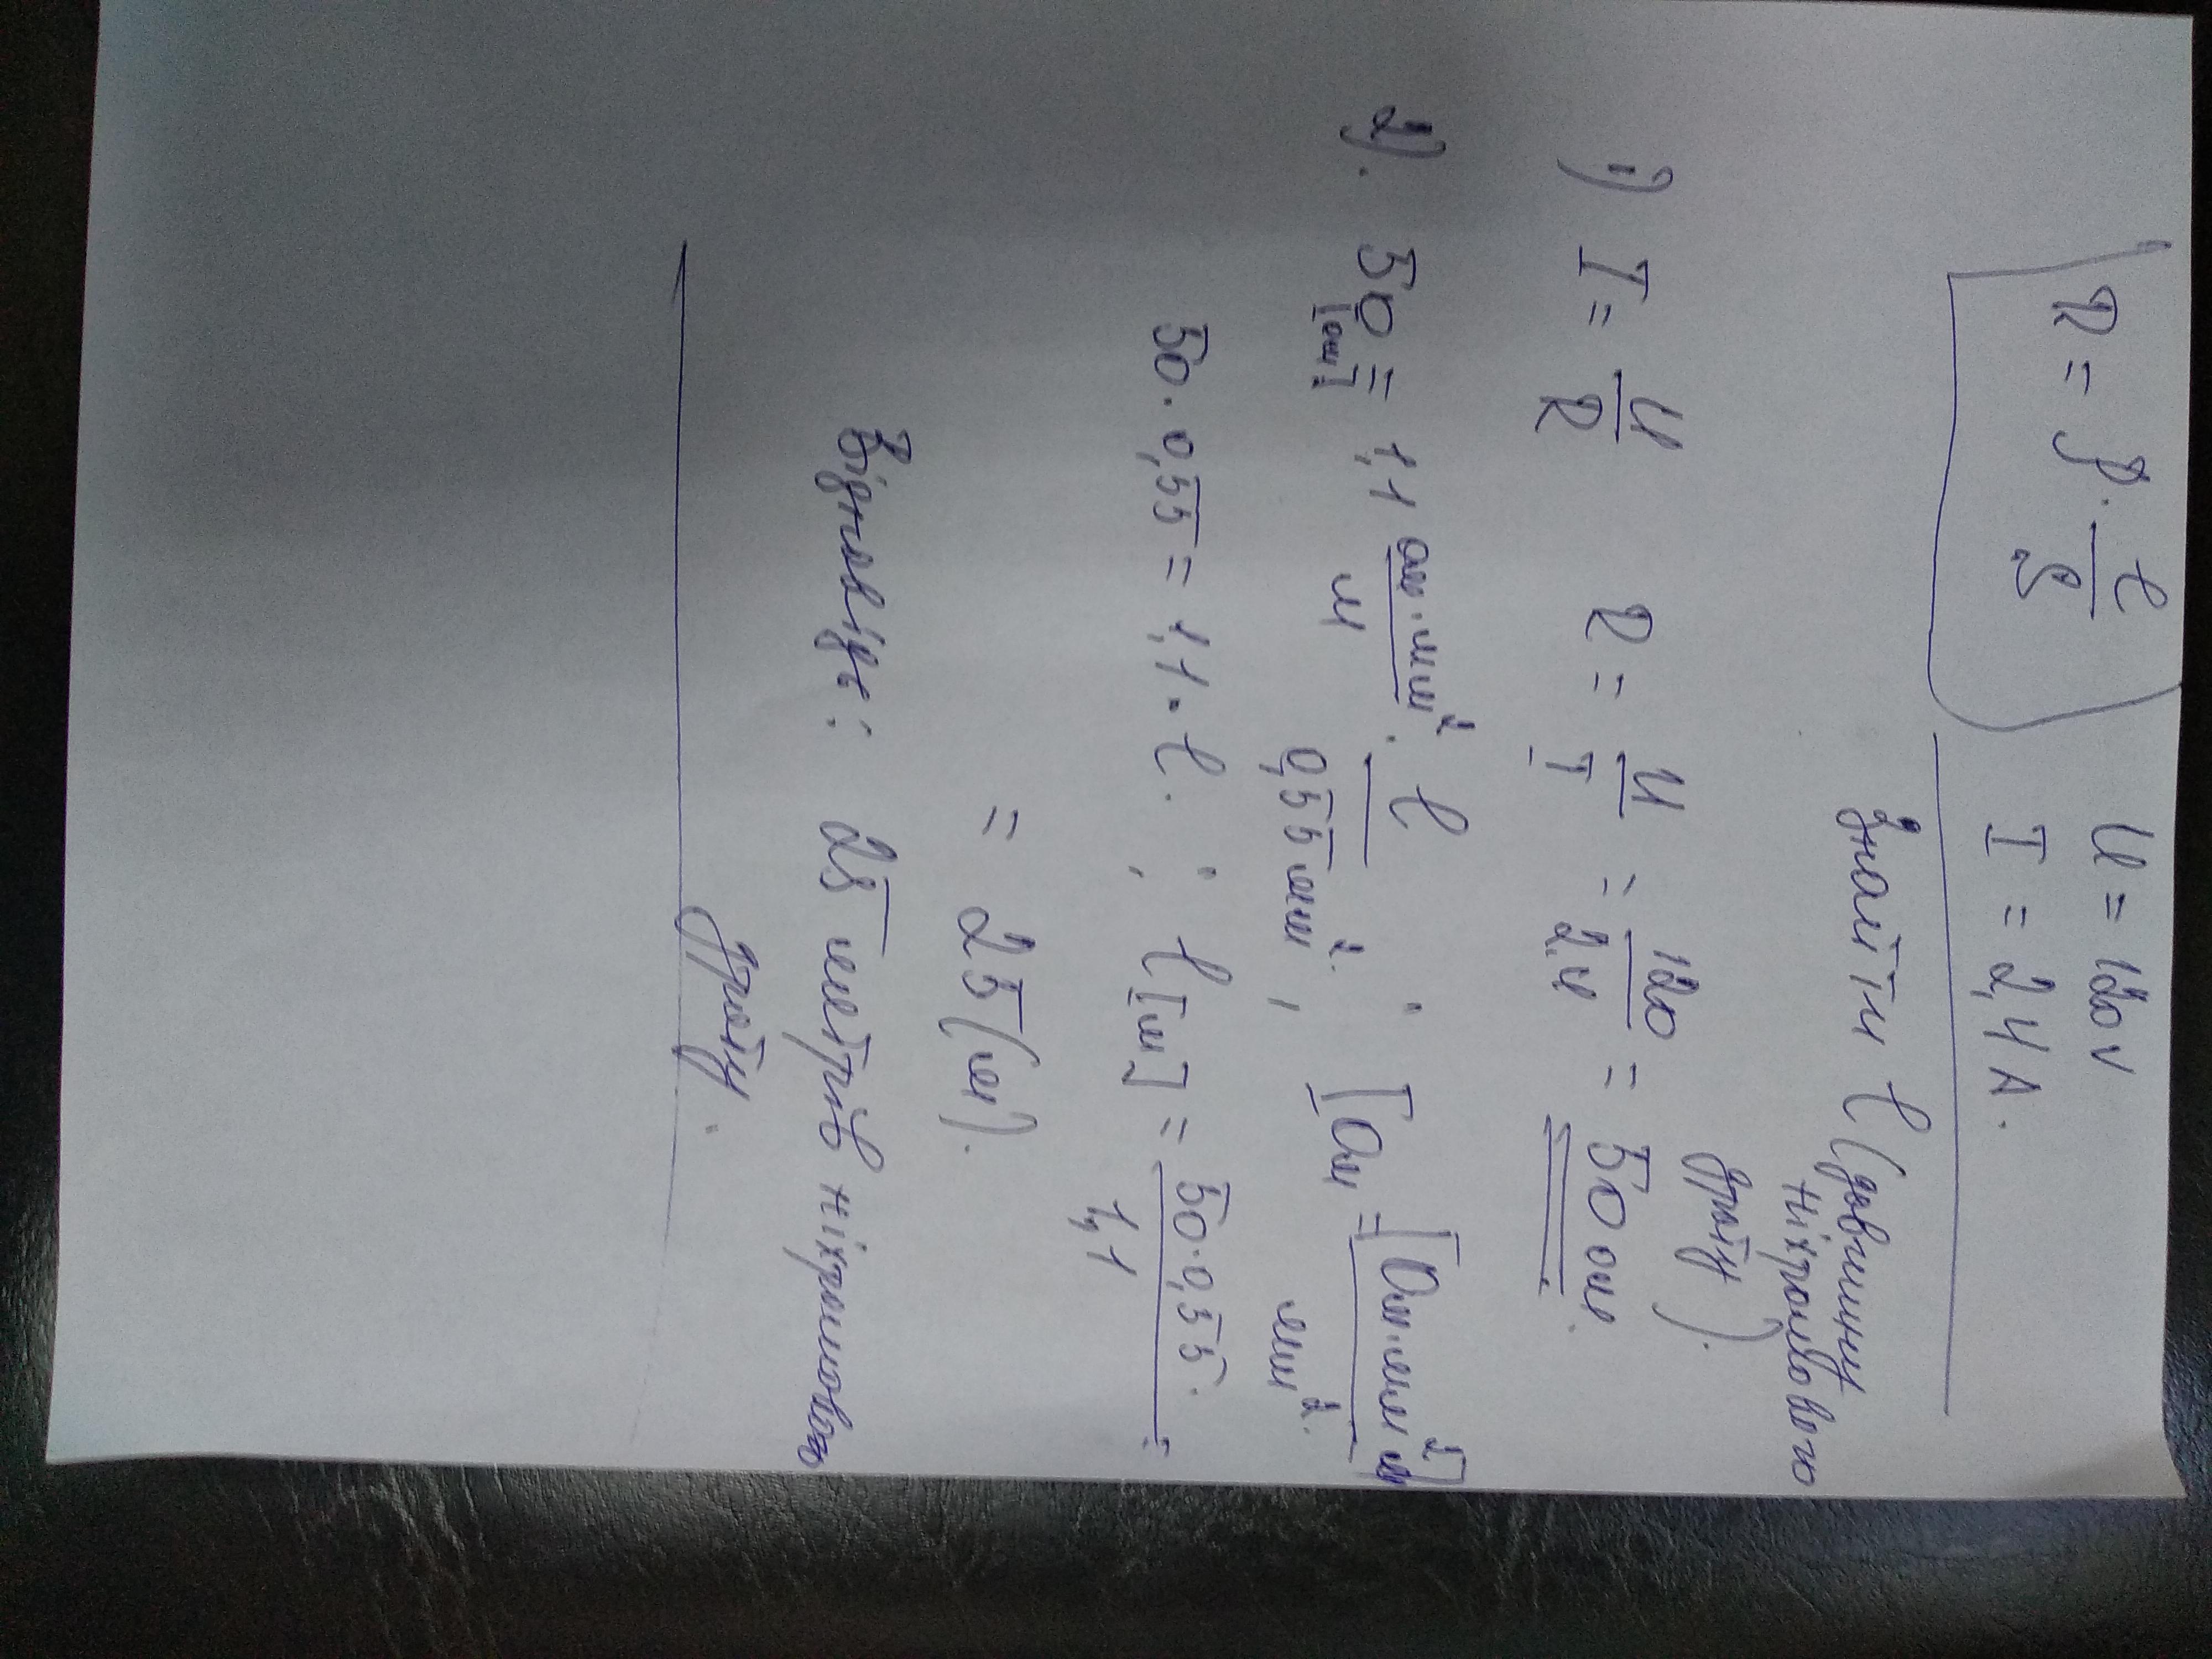 R = ρ · l / S
U = 120 V
I = 2,4 A.
Знайти l (довжину
ніхромового
дроту).
1) I = U / R   R = U / I = 120 / 2,4 = 50 ом.
2). 50 [ом] = 1,1 ом·мм² / м · l / 0,55 мм² ; [Ом = [Ом·мм² м] / мм².
50 · 0,55 = 1,1 · l. ; l [м] = 50·0,55 / 1,1 =
= 25 (м).
Відповідь: 25 метрів ніхромового
дроту.